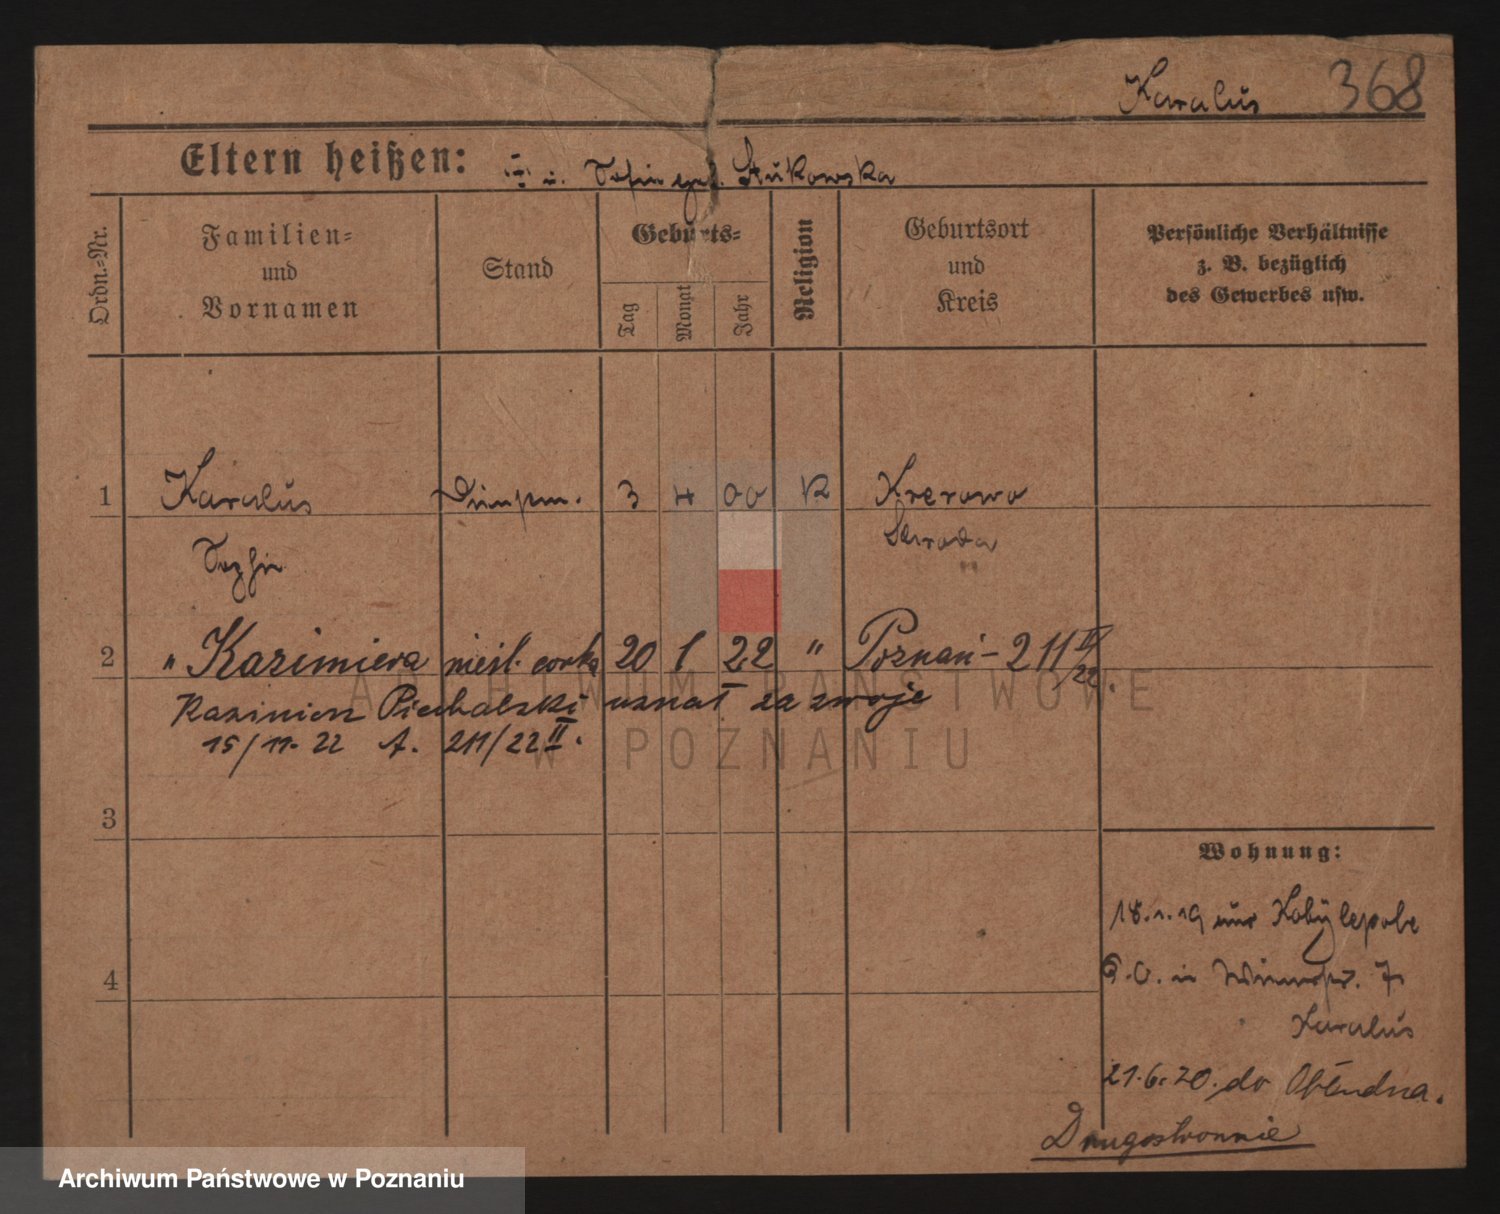 Karalus 368
Eltern heißen: u. Sofie geb. Stukowska
Ordn.=Nr.
Familien=
und
Vornamen
Stand
Geburts=
Tag
Monat
Jahr
Religion
Geburtsort
und
Kreis
Persönliche Verhältnisse
z. B. bezüglich
des Gewerbes usw.
1 Karalus 3 4 00 K Krerowo
Sophie Schroda
2 " Kazimiera nieśl. corka 20 1 22 " Poznań - 211 II/22.
Kazimierz Piechalski uznał za swoje
15/11. 22 A. 211/22 II.
3
Wohnung:
18.1.19 aus Kobylepole
4
Karalus
21.6.20. do
Drugostronnie
ARCHIWUM PAŃSTWOWE
W POZNANIU
Archiwum Państwowe w Poznaniu